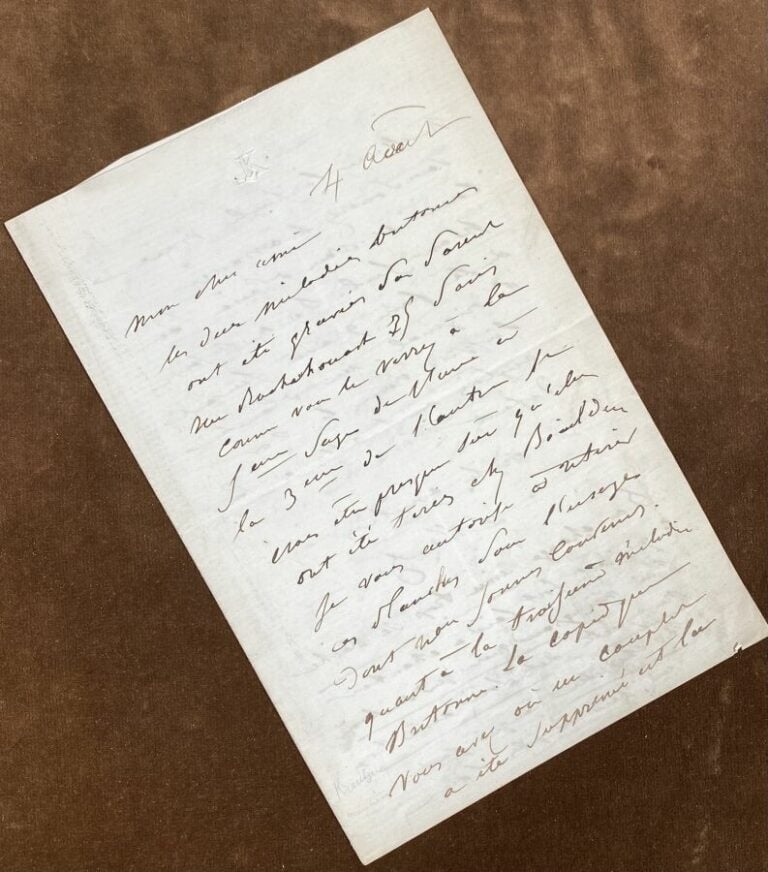 4 août
mon cher ami
les deux mélodies bretonnes
ont été gravées par Parent
rue Rochechouart 75 Paris
comme vous le verrez à la
1ere page de l'une et
la 3eme de l'autre je
crois être presque sur qu'elles
ont été tirées chez Boieldieu
Je vous autorise à retirer
ces planches pour l'usage
dont nous sommes convenus.
quant à la troisieme mélodie
Bretonne. La copie que
vous avez où un couplet
a été supprimé est la